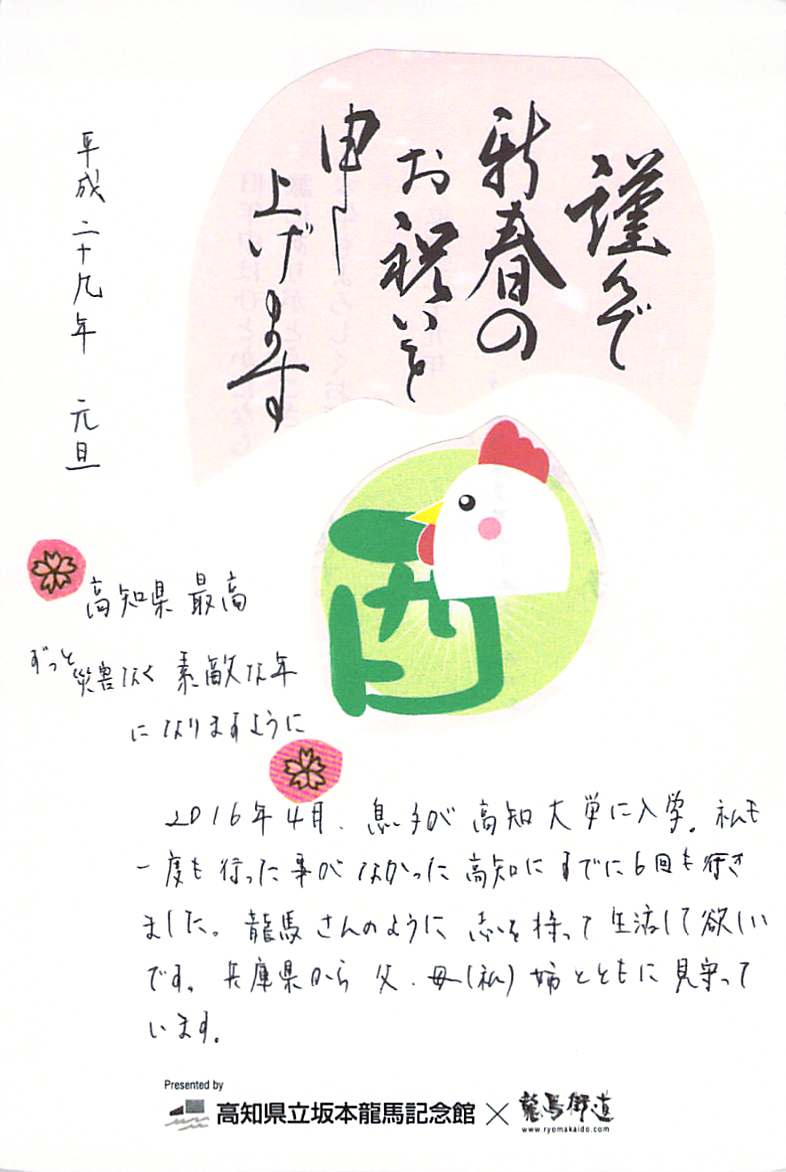 謹んで
新春の
お祝いを
申し
上げます
平成二十九年 元旦
酉
高知県 最高
ずっと災害なく 素敵な年
になりますように
2016年4月、息子が高知大学に入学。私も
一度も行った事がなかった高知にすでに6回も行き
ました。龍馬さんのように志を持って生活して欲しい
です。兵庫県から父、母(私)姉とともに見守って
います。
Presented by
高知県立坂本龍馬記念館×龍馬街道
www.ryomakaido.com